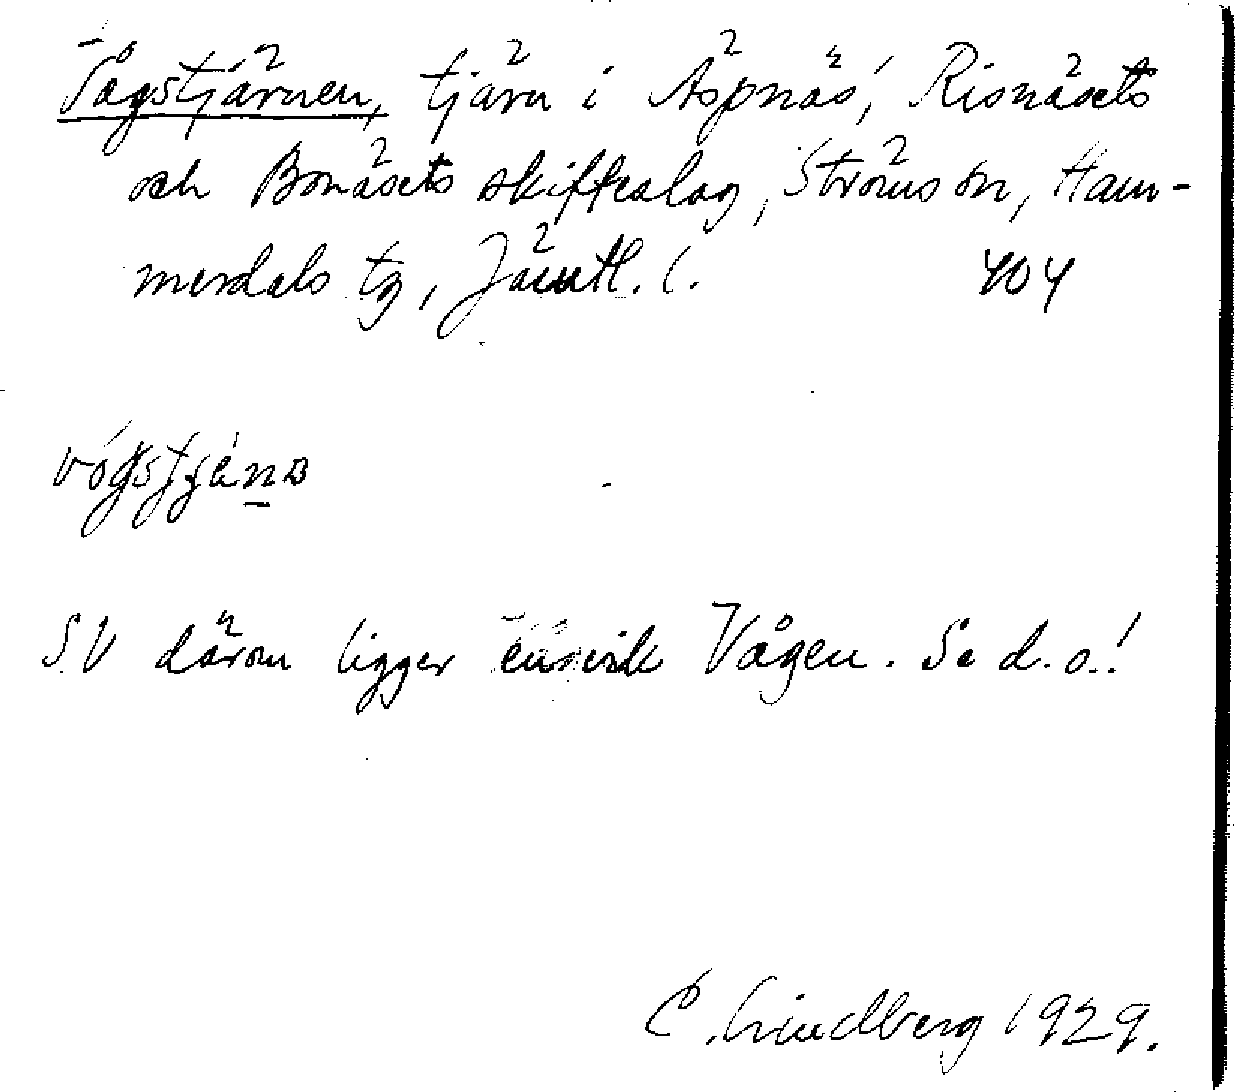 Vågstjärnen, tjärn i Äspnäs, Risnäsets
och Bonäsets skifteslag, Ströms sn, Ham-
merdals tg, Jämtl. l. 404
SV därom ligger vik Vågen. Se d.o.!
C. Lindberg 1929.